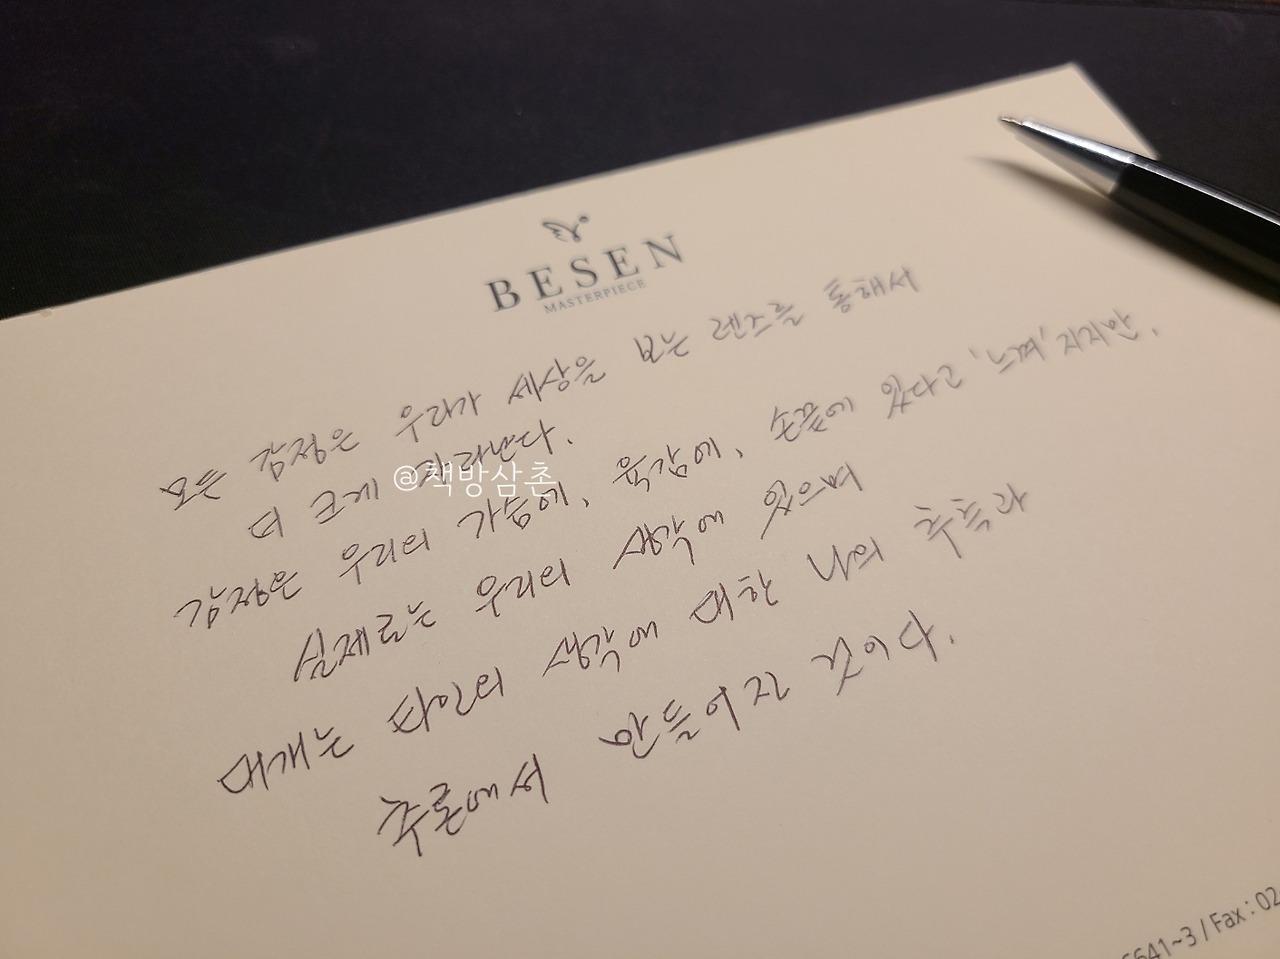 BESEN
MASTERPIECE
모든 감정은 우리가 세상을 보는 렌즈를 통해서
더 크게 자라난다.
@책방삼촌
감정은 우리의 가슴에, 육감에, 손끝에 있다고 '느껴'지지만,
실제로는 우리의 생각에 있으며
대개는 타인의 생각에 대한 나의 추측과
추론에서 만들어진 것이다.
5641~3 / Fax : 02